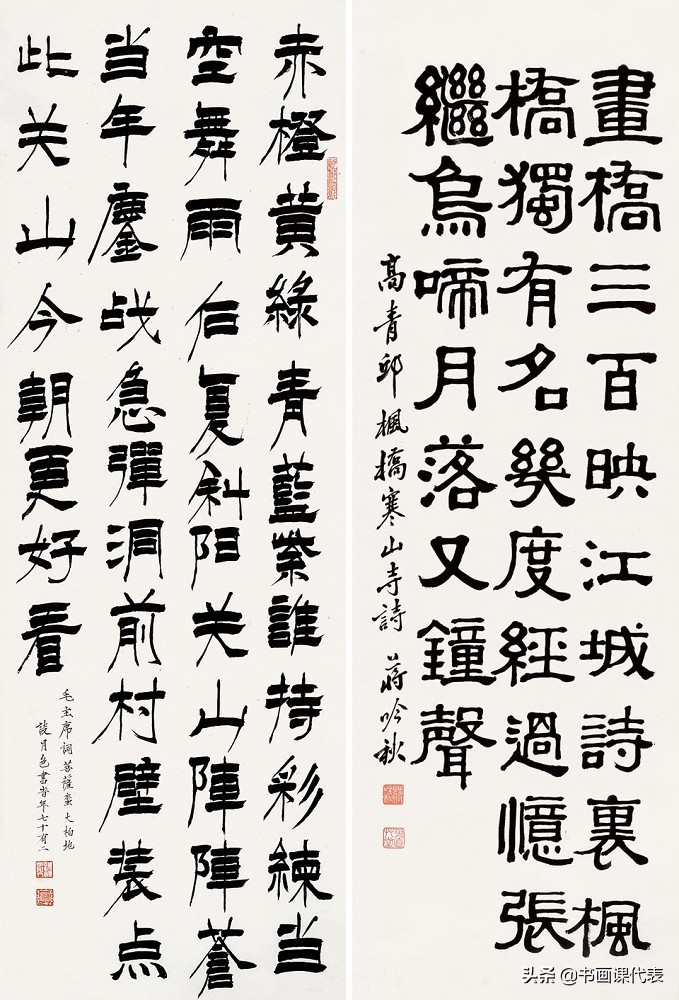 畫橋三百映江城詩裏楓
橋獨有名幾度經過憶張
繼烏啼月落又鐘聲
高青邱楓橋寒山寺詩 蔣吟秋
赤橙黄綠青藍紫誰持彩練当
空舞雨后复斜阳关山陣陣蒼
当年鏖战急彈洞前村壁装点
此关山今朝更好看
毛主席词菩薩蛮大柏地
談月色書旹年七十有二
头条 @书画课代表